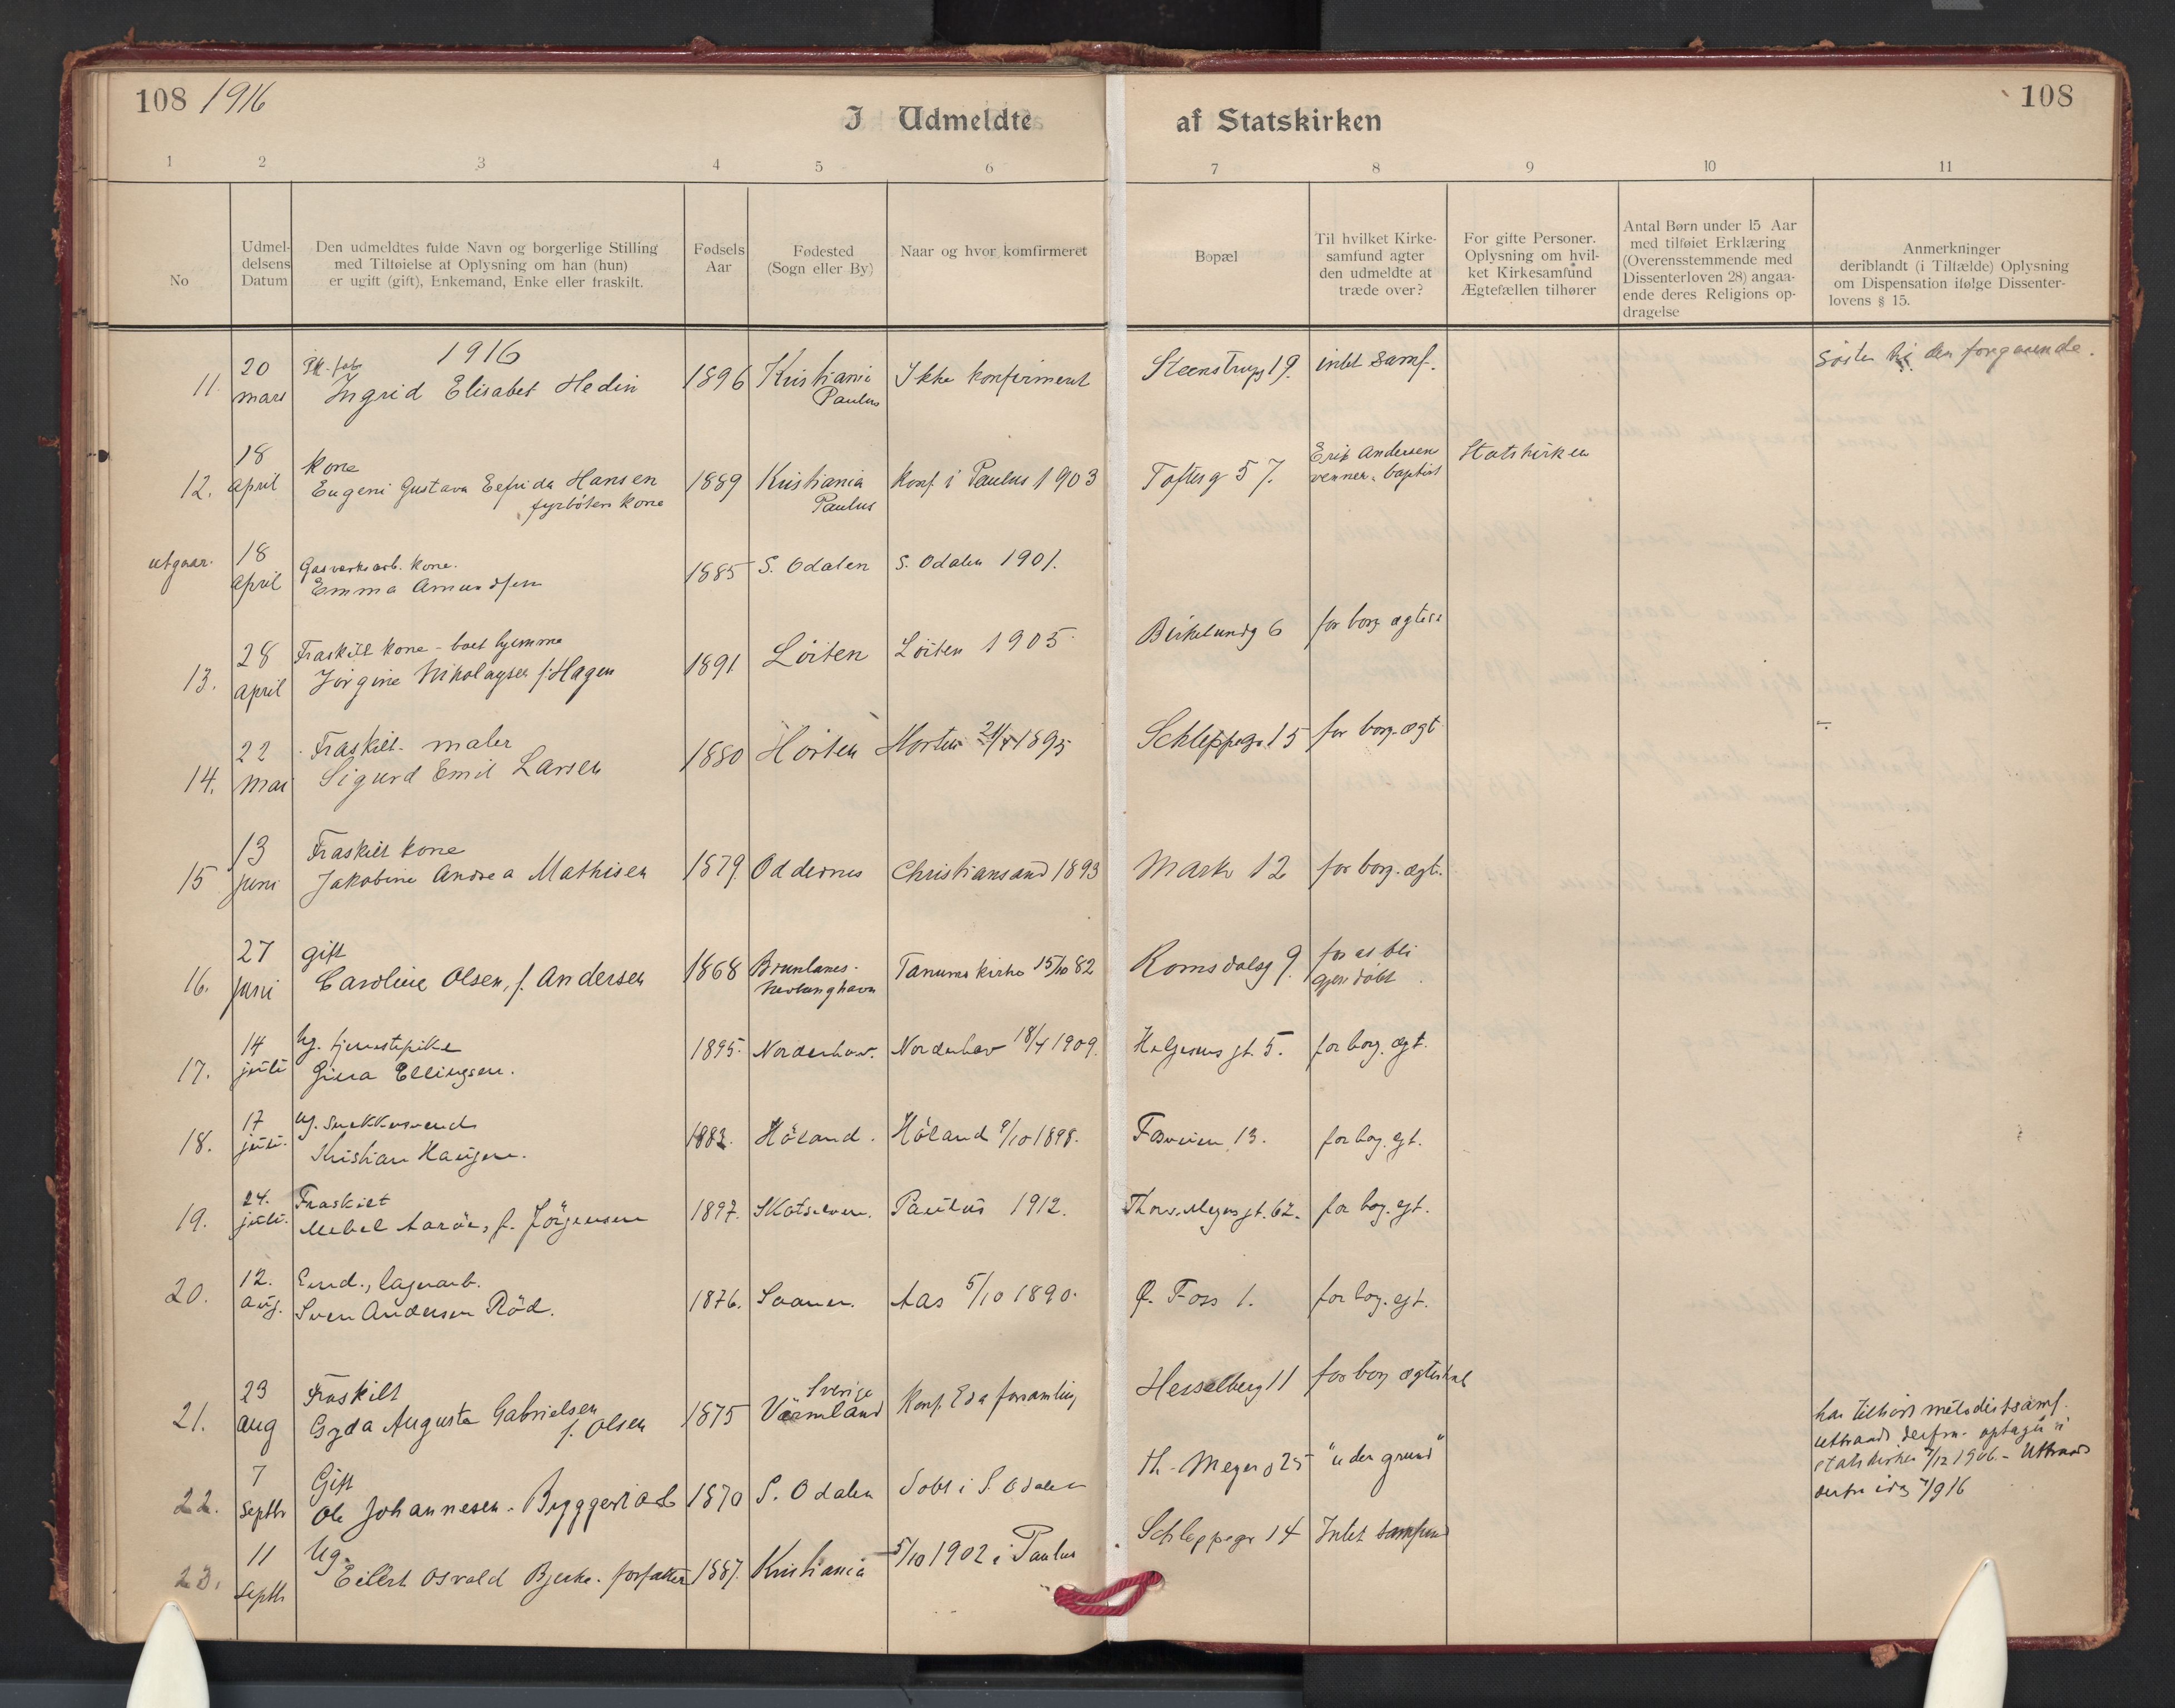 108 1916
108
I Udmeldte af Statskirken
1 2 3 4 5 6 7 8 9 10 11
No
Udmel-
delsens
Datum
Den udmeldtes fulde Navn og borgerlige Stilling
med Tilføielse af Oplysning om han (hun)
er ugift (gift), Enkemand, Enke eller fraskilt.
Fødsels
Aar
Fødested
(Sogn eller By)
Naar og hvor komfirmeret
Bopæl
Til hvilket Kirke-
samfund agter
den udmeldte at
træde over?
For gifte Personer.
Oplysning om hvil-
ket Kirkesamfund
Ægtefællen tilhører
Antal Børn under 15 Aar
med tilføiet Erklæring
(Overensstemmende med
Dissenterloven 28) angaa-
ende deres Religions op-
dragelse
Anmerkninger
deriblandt (i Tilfælde) Oplysning
om Dispensation ifølge Dissenter-
lovens § 15.
1916
11. 20 mars Ingrid Elisabet Hedin 1896 Kristiania Ikke konfirmert Steenstrupg 19. intet samf. Søster til den foregaaende.
Paulus
12. 18 april kone
Eugeni Gustava Hansen 1889 Kristiania konf. i Paulus 1903 Toftesg 57. Erik Andersen Statskirken
fyrbøters kone Paulus venner. baptist
utgaar. 18 april Gasverksarb. kone.
Emma Amundsen 1885 S. Odalen S. Odalen 1901.
13. 28 april Fraskilt kone - hjemme
Jørgine Nikolaysen f. Hagen 1891 Løiten Løiten 1905. Birkelundg 6 for borg. ægtes.
14. 22 mai Fraskilt. maler
Sigurd Emil Larsen 1880 Horten Horten 1895 Schleppegr 15 for borg. ægt.
15 13 juni Fraskilt kone
Jakobine Andrea Mathisen 1879 Oddernes Christiansand 1893 Markv 12 for borg. ægt.
16. 27 juni gift
Caroline Olsen, f. Andersen 1868 Brunlanes- Tanums kirke 15/10 82 Romsdalsg 9. for at bli
Nevlunghavn gjendøbt
17. 14 juli ug. tjenestepike
Gina Ellingsen. 1895. Norderhov. Norderhov 18/4 1909. Helgesens gt. 5. for borg. ægt.
18. 17 juli. ug. snekkersvend
Kristian Haugen. 1883. Høland. Høland 9/10 1898. 13. for bog. egt.
19. 24. juli. Fraskilt
f. Jørgensen 1897. Skotselven. Paulus 1912. Thorv. Meyers gt. 62. for bog. egt.
20. 12. aug. lagerarb.
Sven Andersen Rød. 1876. Saaner. Aas 5/10 1890. Ø. Foss 1. for bog. egt.
21. 23 aug Fraskilt
Gyda Augusta Gabrielsen 1875 Sverige Konf. Eda forsamling Hesselberg 11 for borg ægteskab
f. Olsen Värmland
22. 7 septbr Gift
Ole Johannesen. Byggeriarb 1870 S. Odalen S. Odalen Th. Meyer g 25 "uden grund"
har tilhørt metodistsamf.
uttraadt derfra. optaget i
statskirken 7/12 1906. - Uttraadt
derfra idag 7/9 16
23. 11 septbr Ug.
Eilert Osvald Bjerke. forfatter 1887. Kristiania 5/10 1902 i Paulus Schleppegr 14 Intet samfund